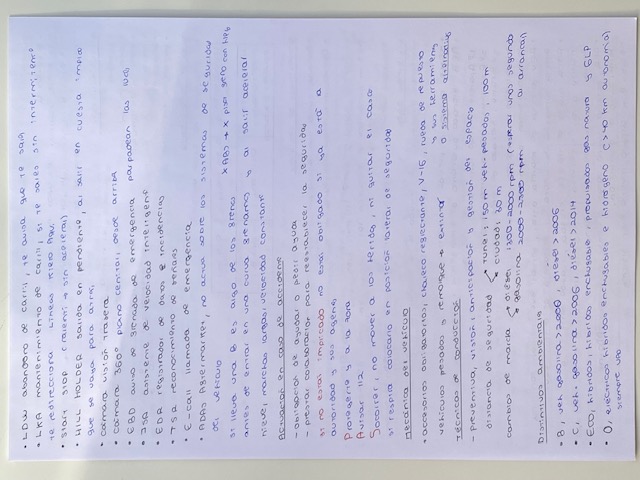 • LDW abandono de carril, te avisa que te sales
• LKA mantenimiento de carril, si te sales sin intermitente
te redirecciona líneas
• Start stop (ralentí → sin acelerar)
• HILL HOLDER salida en pendiente, al salir en cuesta impide
que se vaya para atrás
• cámara visión trasera
• cámara 360º plano cenital desde arriba
• EBD aviso de frenada de emergencia parpadean las luces
• ISA asistente de velocidad inteligente
• EDR registrador de datos e incidencias
• TSR reconocimiento de señales
• E-call llamada de emergencia
• ADAS Aftermarket, no actúa sobre los sistemas de seguridad
del vehículo
si lleva una B es algo de los frenos x ABS → x piso seco con
antes de entrar en una curva frenamos y al salir acelerar
nieve, marchas largas, velocidad constante
Actuación en caso de accidente
- obligación de ayudar y pedir ayuda
- prestar colaboración para restablecer la seguridad
si no estás implicado no estás obligado si ya está la
autoridad y sus agentes
Proteger y a la zona
Avisar 112
Socorrer, no mover a los heridos, ni quitar el casco
si respira colocarlo en posición lateral de seguridad
Mecánica del vehículo
• accesorios obligatorios; chaleco reflectante, V-16, rueda de repuesto
vehículos pesados y remolque → extintor y sus herramientas
o sistema alternativo
Técnicas de conducción
- preventiva, visión, anticipación y gestión del espacio
distancia de seguridad túnel: 150m veh. pesados, 100m
ciudad: 50m
cambios de marcha diésel 1500-2000 rpm (esperar unos segundos
gasolina 2000-2500 rpm al arrancar)
Distintivos ambientales
• B, veh. gasolina >2000, diésel >2006
• C, veh gasolina >2006, diésel >2014
• Eco, híbridos, híbridos enchufable, propulsados gas natural y GLP
• O, eléctricos híbridos enchufables e hidrógeno (>40 km autonomía)
siempre